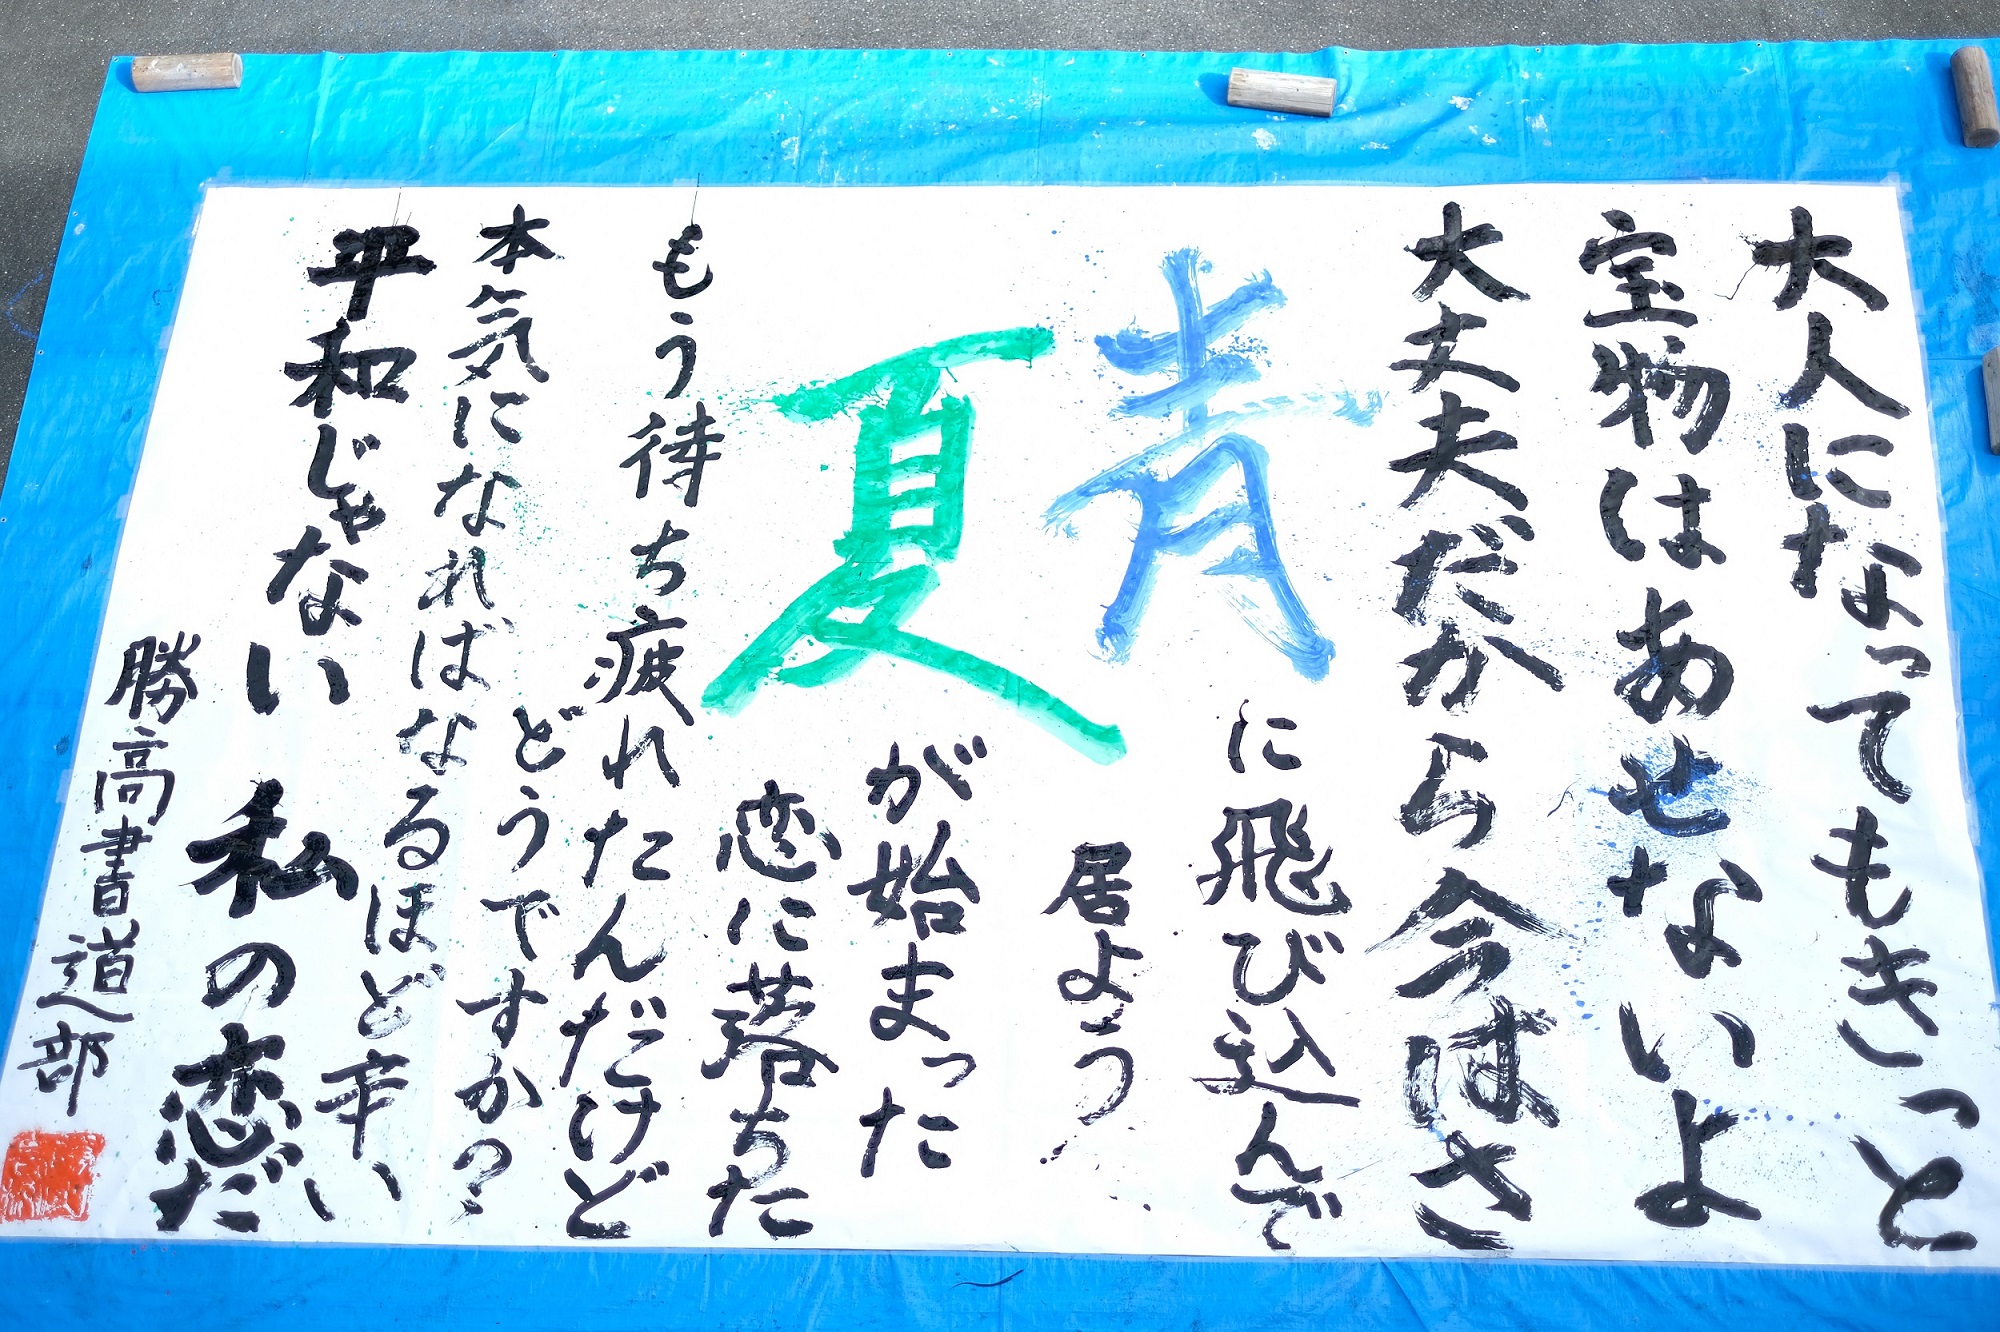 大人になってもきっと
宝物はあせないよ
大丈夫だから今はさ
青
に飛び込んで
居よう
夏
が始まった
恋に落ちた
もう待ち疲れたんだけど
どうですか?
本気になればなるほど辛い
平和じゃない私の恋だ
勝高書道部